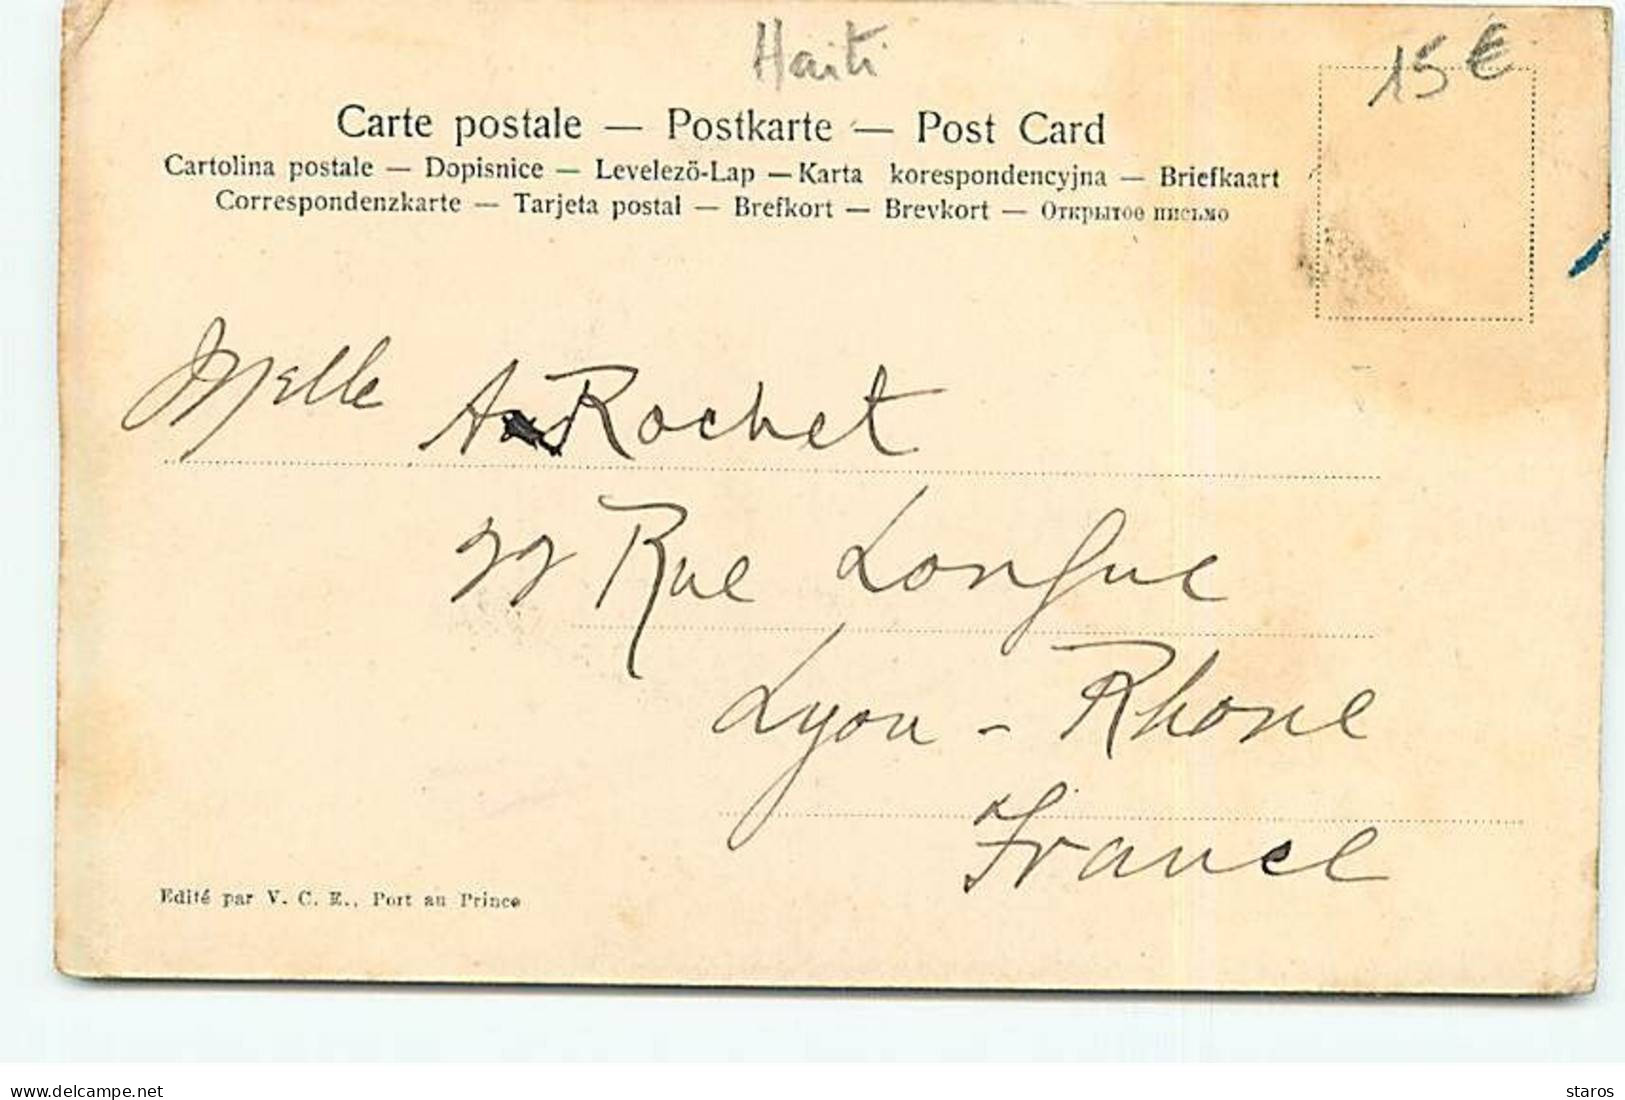 Haiti
15€
Carte postale — Postkarte — Post Card
Cartolina postale — Dopisnice — Levelezö-Lap — Karta korespondencyjna — Briefkaart
Correspondenzkarte — Tarjeta postal — Brefkort — Brevkort — Открытое письмо
Melle A Rochet
22 Rue Longue
Lyon - Rhone
France
Edité par V. C. E., Port au Prince
www.delcampe.net
staros